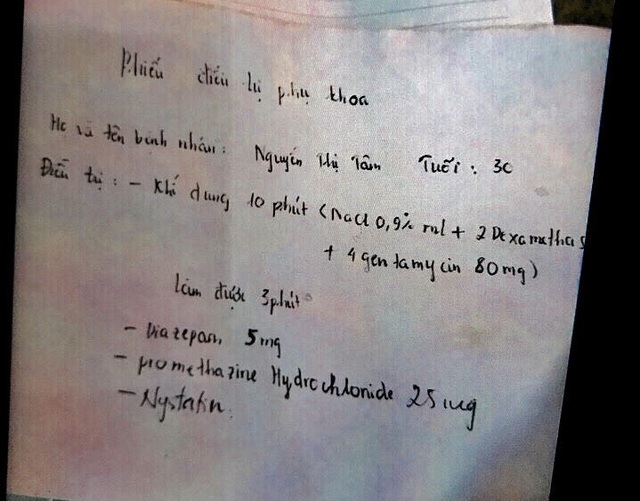 Phiếu điều trị phụ khoa
Họ và tên bệnh nhân: Nguyễn Thị Tâm Tuổi: 30
Điều trị: - Khí dung 10 phút (NaCl 0,9% ml + 2 Dexamethas
+ 4 gentamycin 80mg)
Làm được 3 phút
- Diazepam 5mg
- promethazine Hydrochloride 25mg
- Nystatin